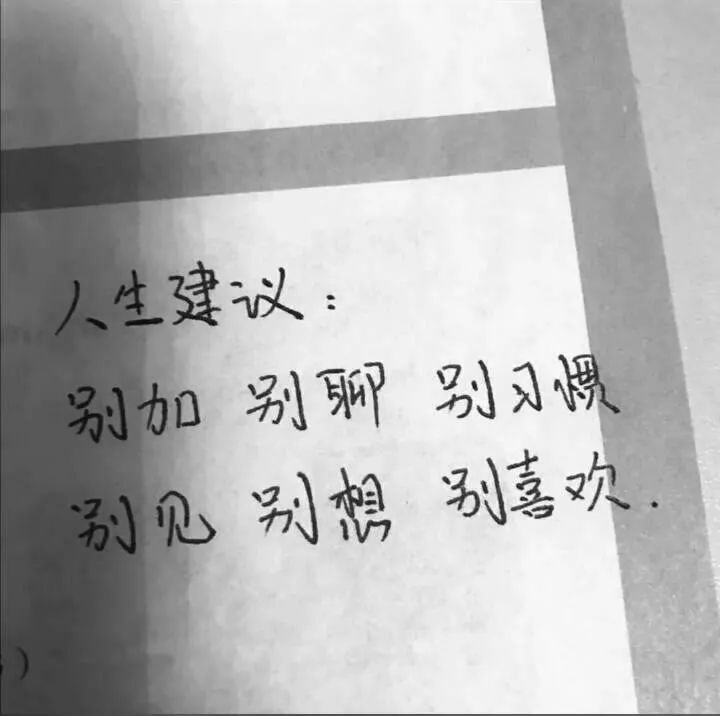 人生建议：
别加 别聊 别习惯
别见 别想 别喜欢.
)